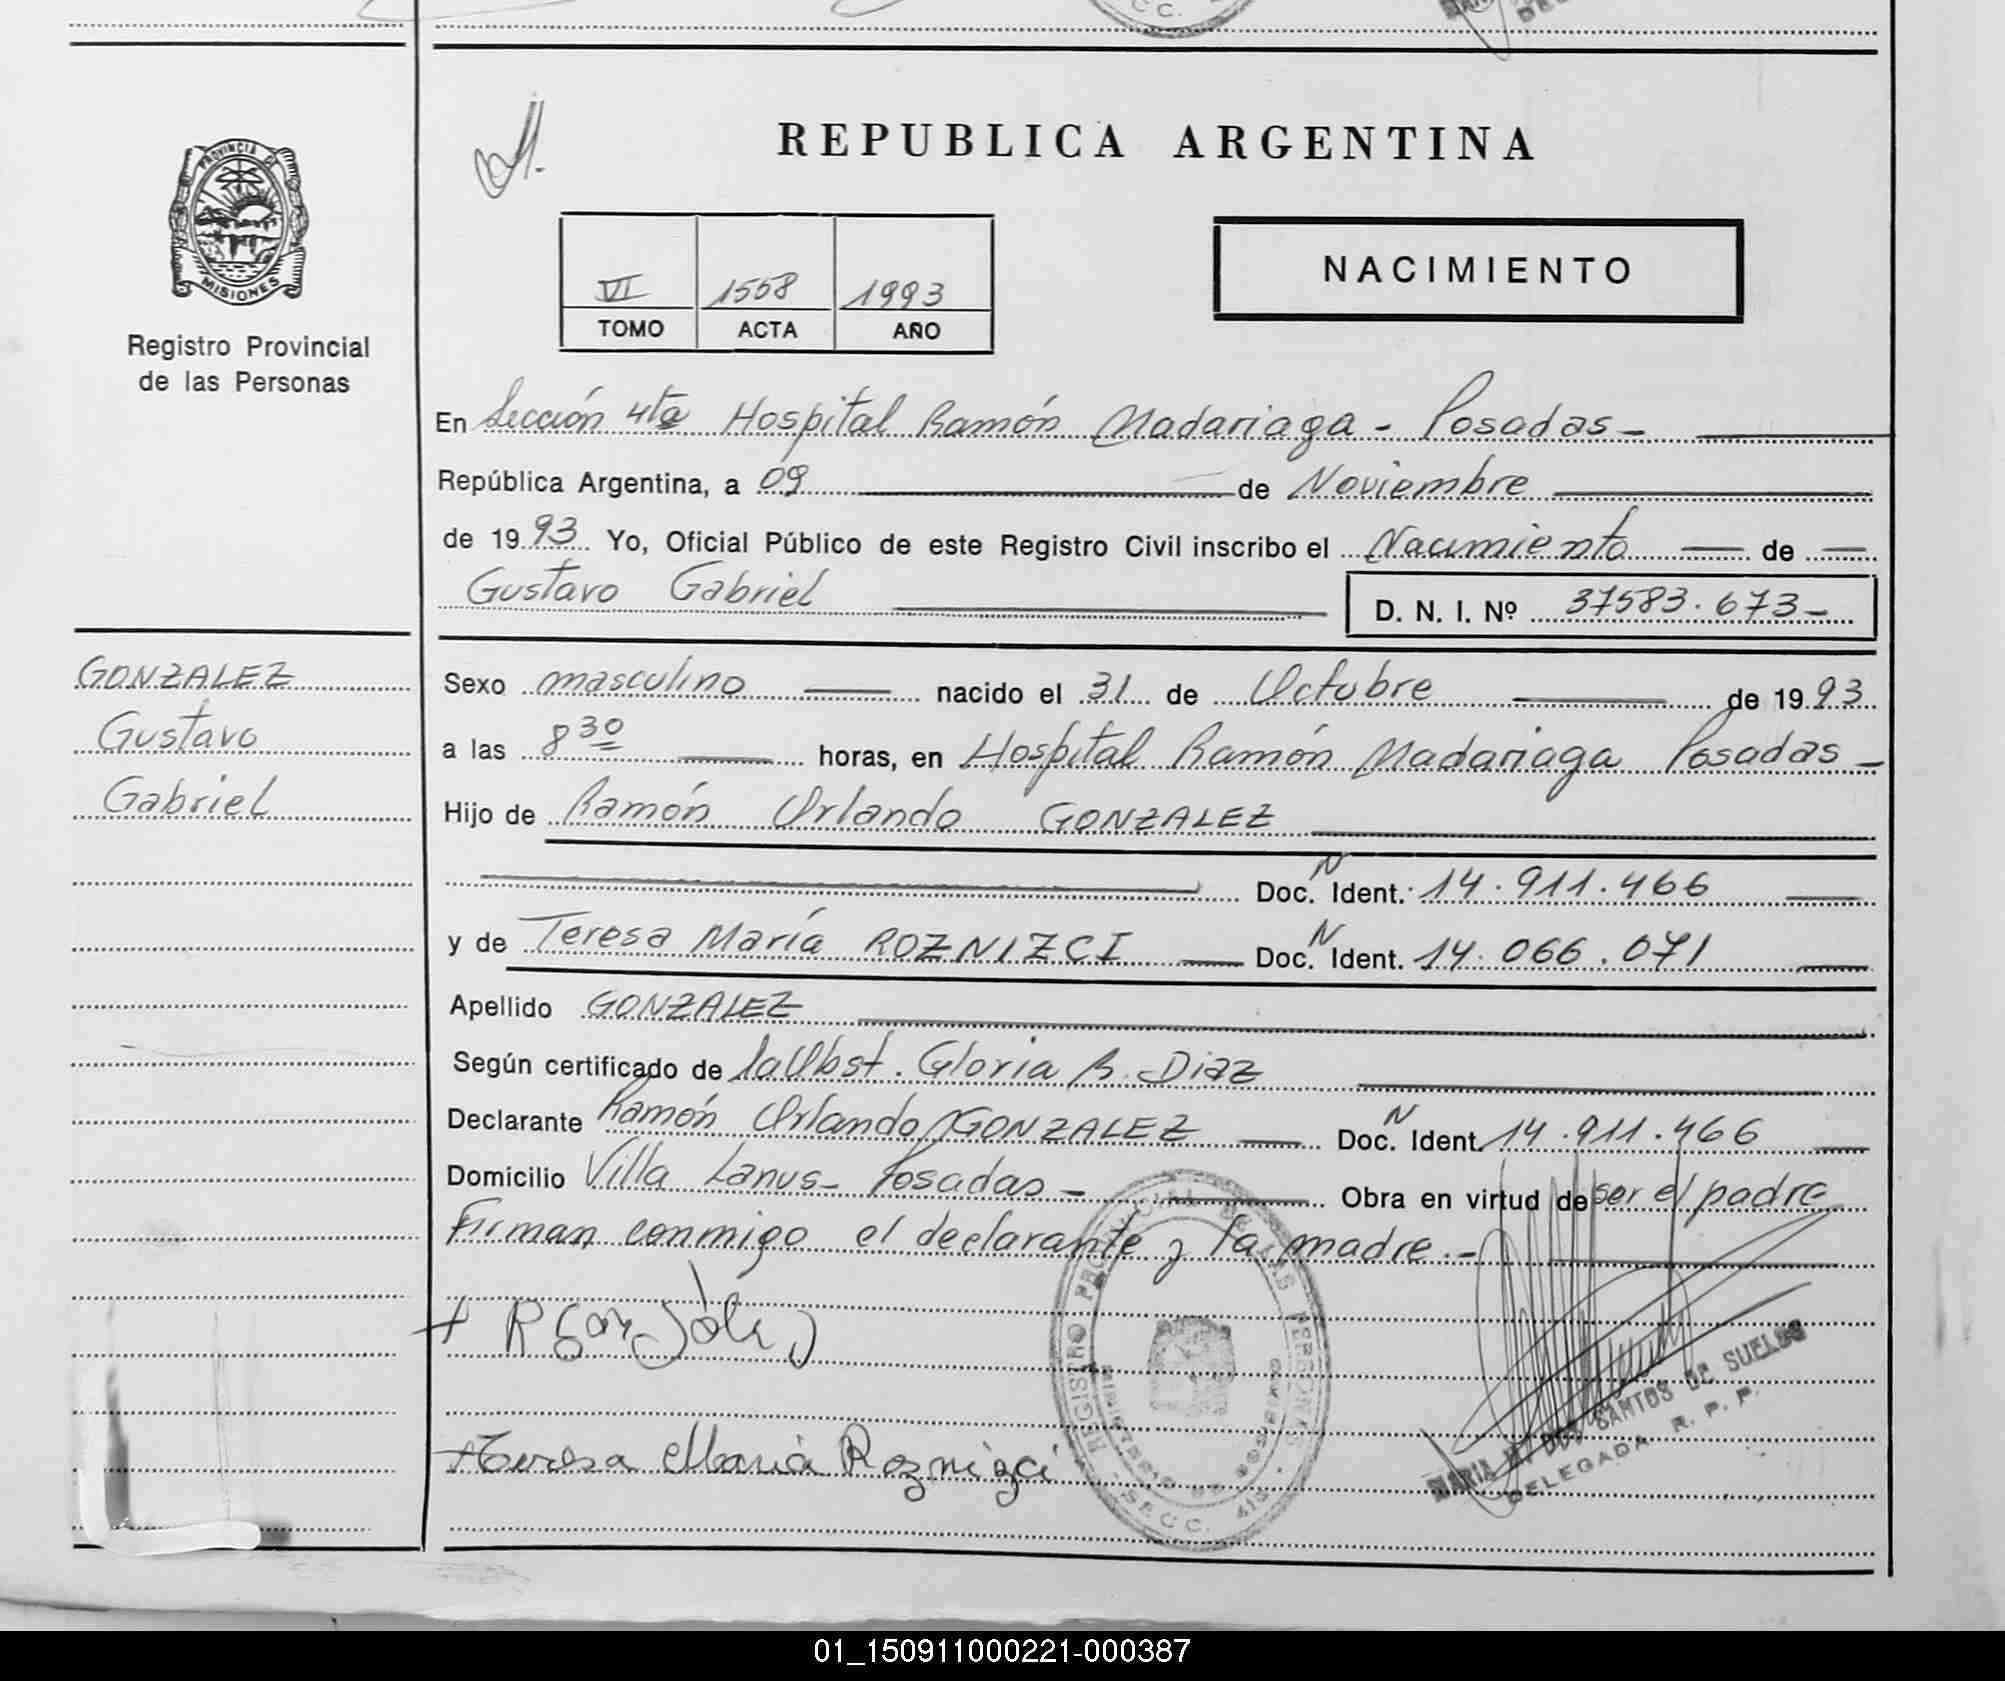 REPUBLICA ARGENTINA
PROVINCIA DE
MISIONES
Registro Provincial
de las Personas
VI 1558 1993
TOMO ACTA AÑO
NACIMIENTO
En Sección 4ta Hospital Ramón Madariaga - Posadas -
República Argentina, a 09 de Noviembre
de 1993 Yo, Oficial Público de este Registro Civil inscribo el Nacimiento de
Gustavo Gabriel D. N. I. Nº 37583.673-
GONZALEZ
Gustavo
Gabriel
Sexo masculino nacido el 31 de Octubre de 1993
a las 8 30 horas, en Hospital Ramón Madariaga Posadas -
Hijo de Ramón Orlando GONZALEZ
Doc. N Ident. 14.911.466
y de Teresa María ROZNIZCI Doc. N Ident. 14.066.071
Apellido GONZALEZ
Según certificado de la Obst. Gloria R. Diaz
Declarante Ramón Orlando GONZALEZ Doc. N Ident. 14.911.466
Domicilio Villa Lanus - Posadas - Obra en virtud de ser el padre
Firman conmigo el declarante y la madre.-
+ R Gonzáles
+ Teresa Maria Roznizci
REGISTRO PROVINCIAL DE LAS PERSONAS
MINISTERIO DE GOBIERNO
SECC. 4ta
MARIA DOS SANTOS DE SUELDO
DELEGADA R. P. P.
01_150911000221-000387